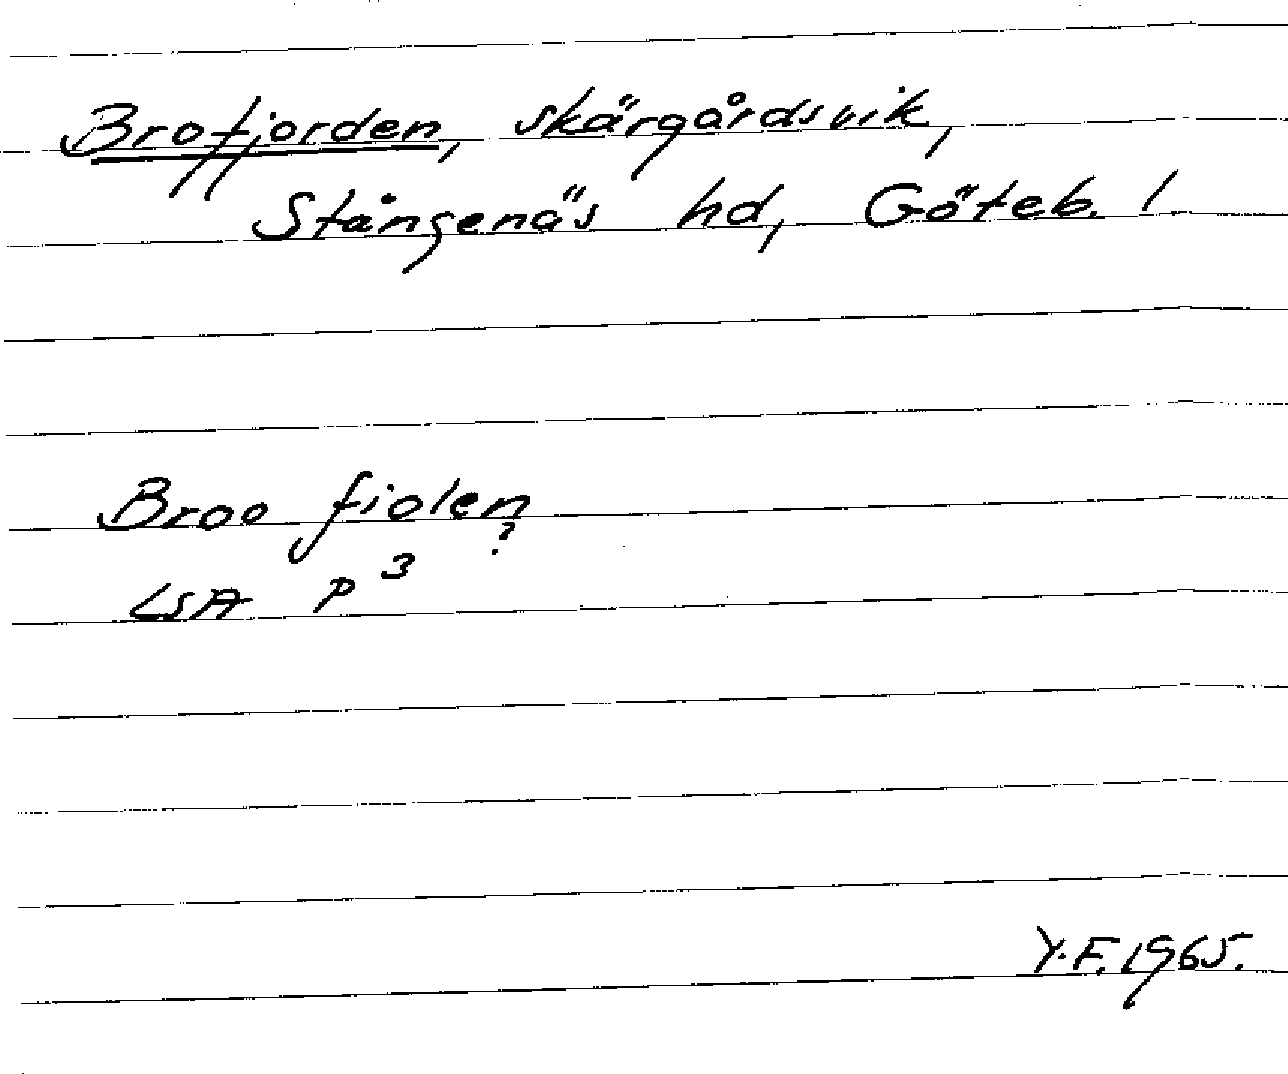 Brofjorden, skärgårdsvik,
Stångenäs hd, Göteb. l
Broo fiolen
?
LSA P 3
Y.F. 1965.